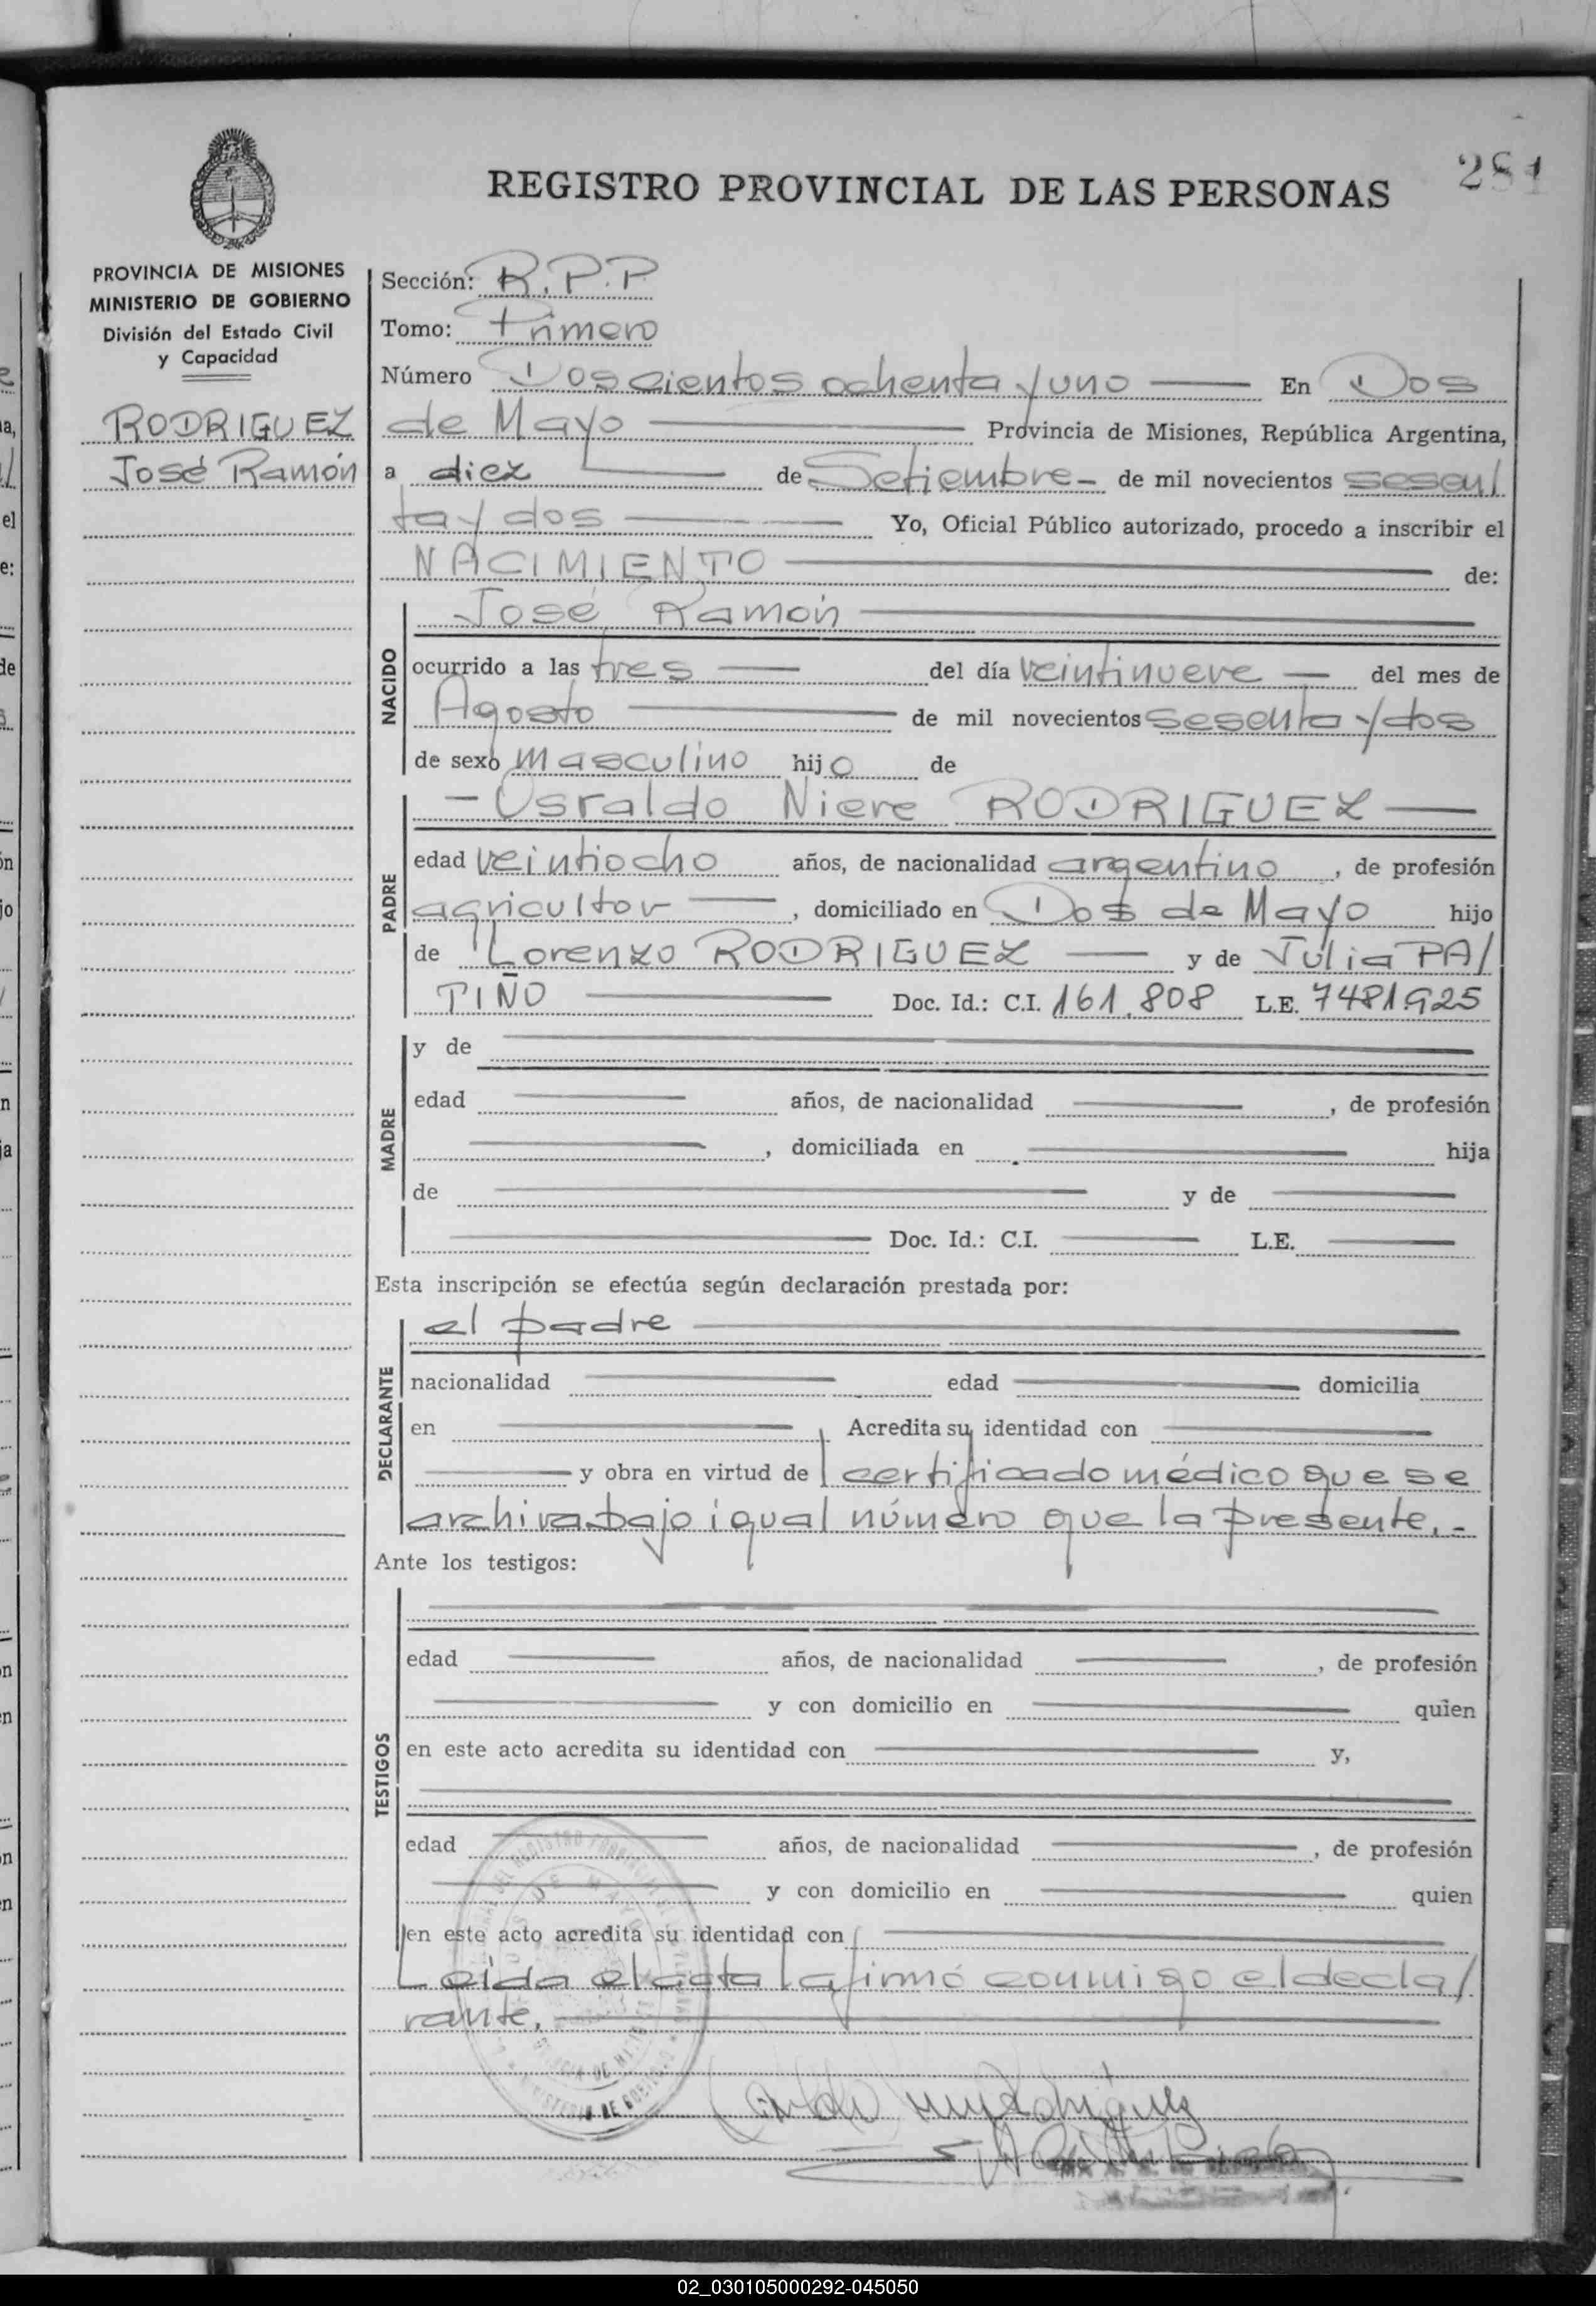 281
REGISTRO PROVINCIAL DE LAS PERSONAS
PROVINCIA DE MISIONES
MINISTERIO DE GOBIERNO
División del Estado Civil
y Capacidad
RODRIGUEZ
José Ramón
Sección: R.P.P
Tomo: Primero
Número Doscientos ochenta y uno En Dos
de Mayo Provincia de Misiones, República Argentina,
a diez de Setiembre de mil novecientos sesen/
ta y dos Yo, Oficial Público autorizado, procedo a inscribir el
NACIMIENTO de:
NACIDO
José Ramón
ocurrido a las tres del día veintinueve del mes de
Agosto de mil novecientos sesenta y dos
de sexo masculino hijo de
PADRE
Osvaldo Nieve RODRIGUEZ
edad veintiocho años, de nacionalidad argentino, de profesión
agricultor, domiciliado en Dos de Mayo hijo
de Lorenzo RODRIGUEZ y de Julia PA/
TIÑO Doc. Id.: C.I. 161.808 L.E. 7481925
MADRE
y de
edad años, de nacionalidad , de profesión
, domiciliada en hija
de y de
Doc. Id.: C.I. L.E.
Esta inscripción se efectúa según declaración prestada por:
DECLARANTE
el padre
nacionalidad edad domicilia
en Acredita su identidad con
y obra en virtud de certificado médico que se
archiva bajo igual número que la presente.-
Ante los testigos:
TESTIGOS
edad años, de nacionalidad , de profesión
y con domicilio en quien
en este acto acredita su identidad con y,
edad años, de nacionalidad , de profesión
y con domicilio en quien
en este acto acredita su identidad con
Leída el acta la firmó conmigo el decla/
rante.
Rodriguez
02_030105000292-045050